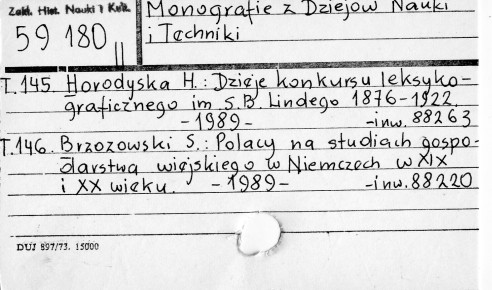 Zakł. Hist. Nauki i Kult.
59 180 II
Monografie z Dziejów Nauki
i Techniki
T.145. Horodyska H.: Dzieje konkursu leksyko-
graficznego im S.B. Lindego 1876-1922.
-1989- -inw. 88263
T.146. Brzozowski S.: Polacy na studiach gospo-
darstwa wiejskiego w Niemczech w XIX
i XX wieku. -1989- -inw. 88220
DUJ 897/73. 15000